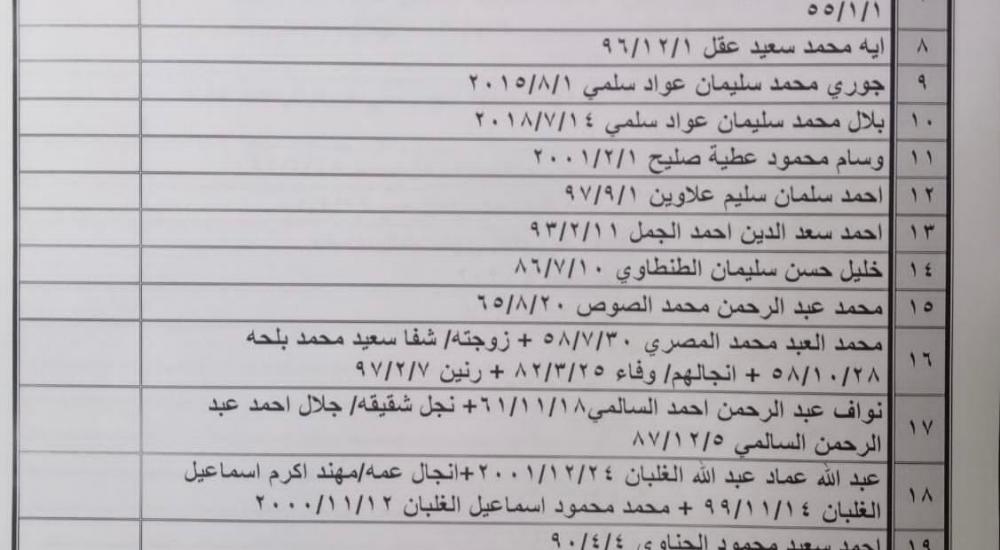 ٥٥/١/١
٨ ايه محمد سعيد عقل ٩٦/١٢/١
٩ جوري محمد سليمان عواد سلمي ٢٠١٥/٨/١
١٠ بلال محمد سليمان عواد سلمي ٢٠١٨/٧/١٤
١١ وسام محمود عطية صليح ٢٠٠١/٢/١
١٢ احمد سلمان سليم علاوين ٩٧/٩/١
١٣ احمد سعد الدين احمد الجمل ٩٣/٢/١١
١٤ خليل حسن سليمان الطنطاوي ٨٦/٧/١٠
١٥ محمد عبد الرحمن محمد الصوص ٦٥/٨/٢٠
١٦ محمد العبد محمد المصري ٥٨/٧/٣٠ + زوجته/ شفا سعيد محمد بلحه
٥٨/١٠/٢٨ + انجالهم/ وفاء ٨٢/٣/٢٥ + رنين ٩٧/٢/٧
١٧ نواف عبد الرحمن احمد السالمي٦١/١١/١٨+ نجل شقيقه/ جلال احمد عبد
الرحمن السالمي ٨٧/١٢/٥
١٨ عبد الله عماد عبد الله الغلبان ٢٠٠١/١٢/٢٤+انجال عمه/مهند اكرم اسماعيل
الغلبان ٩٩/١١/١٤ + محمد محمود اسماعيل الغلبان ٢٠٠٠/١١/١٢
١٩ احمد سعيد محمود الحناوي ٩٠/٤/٤